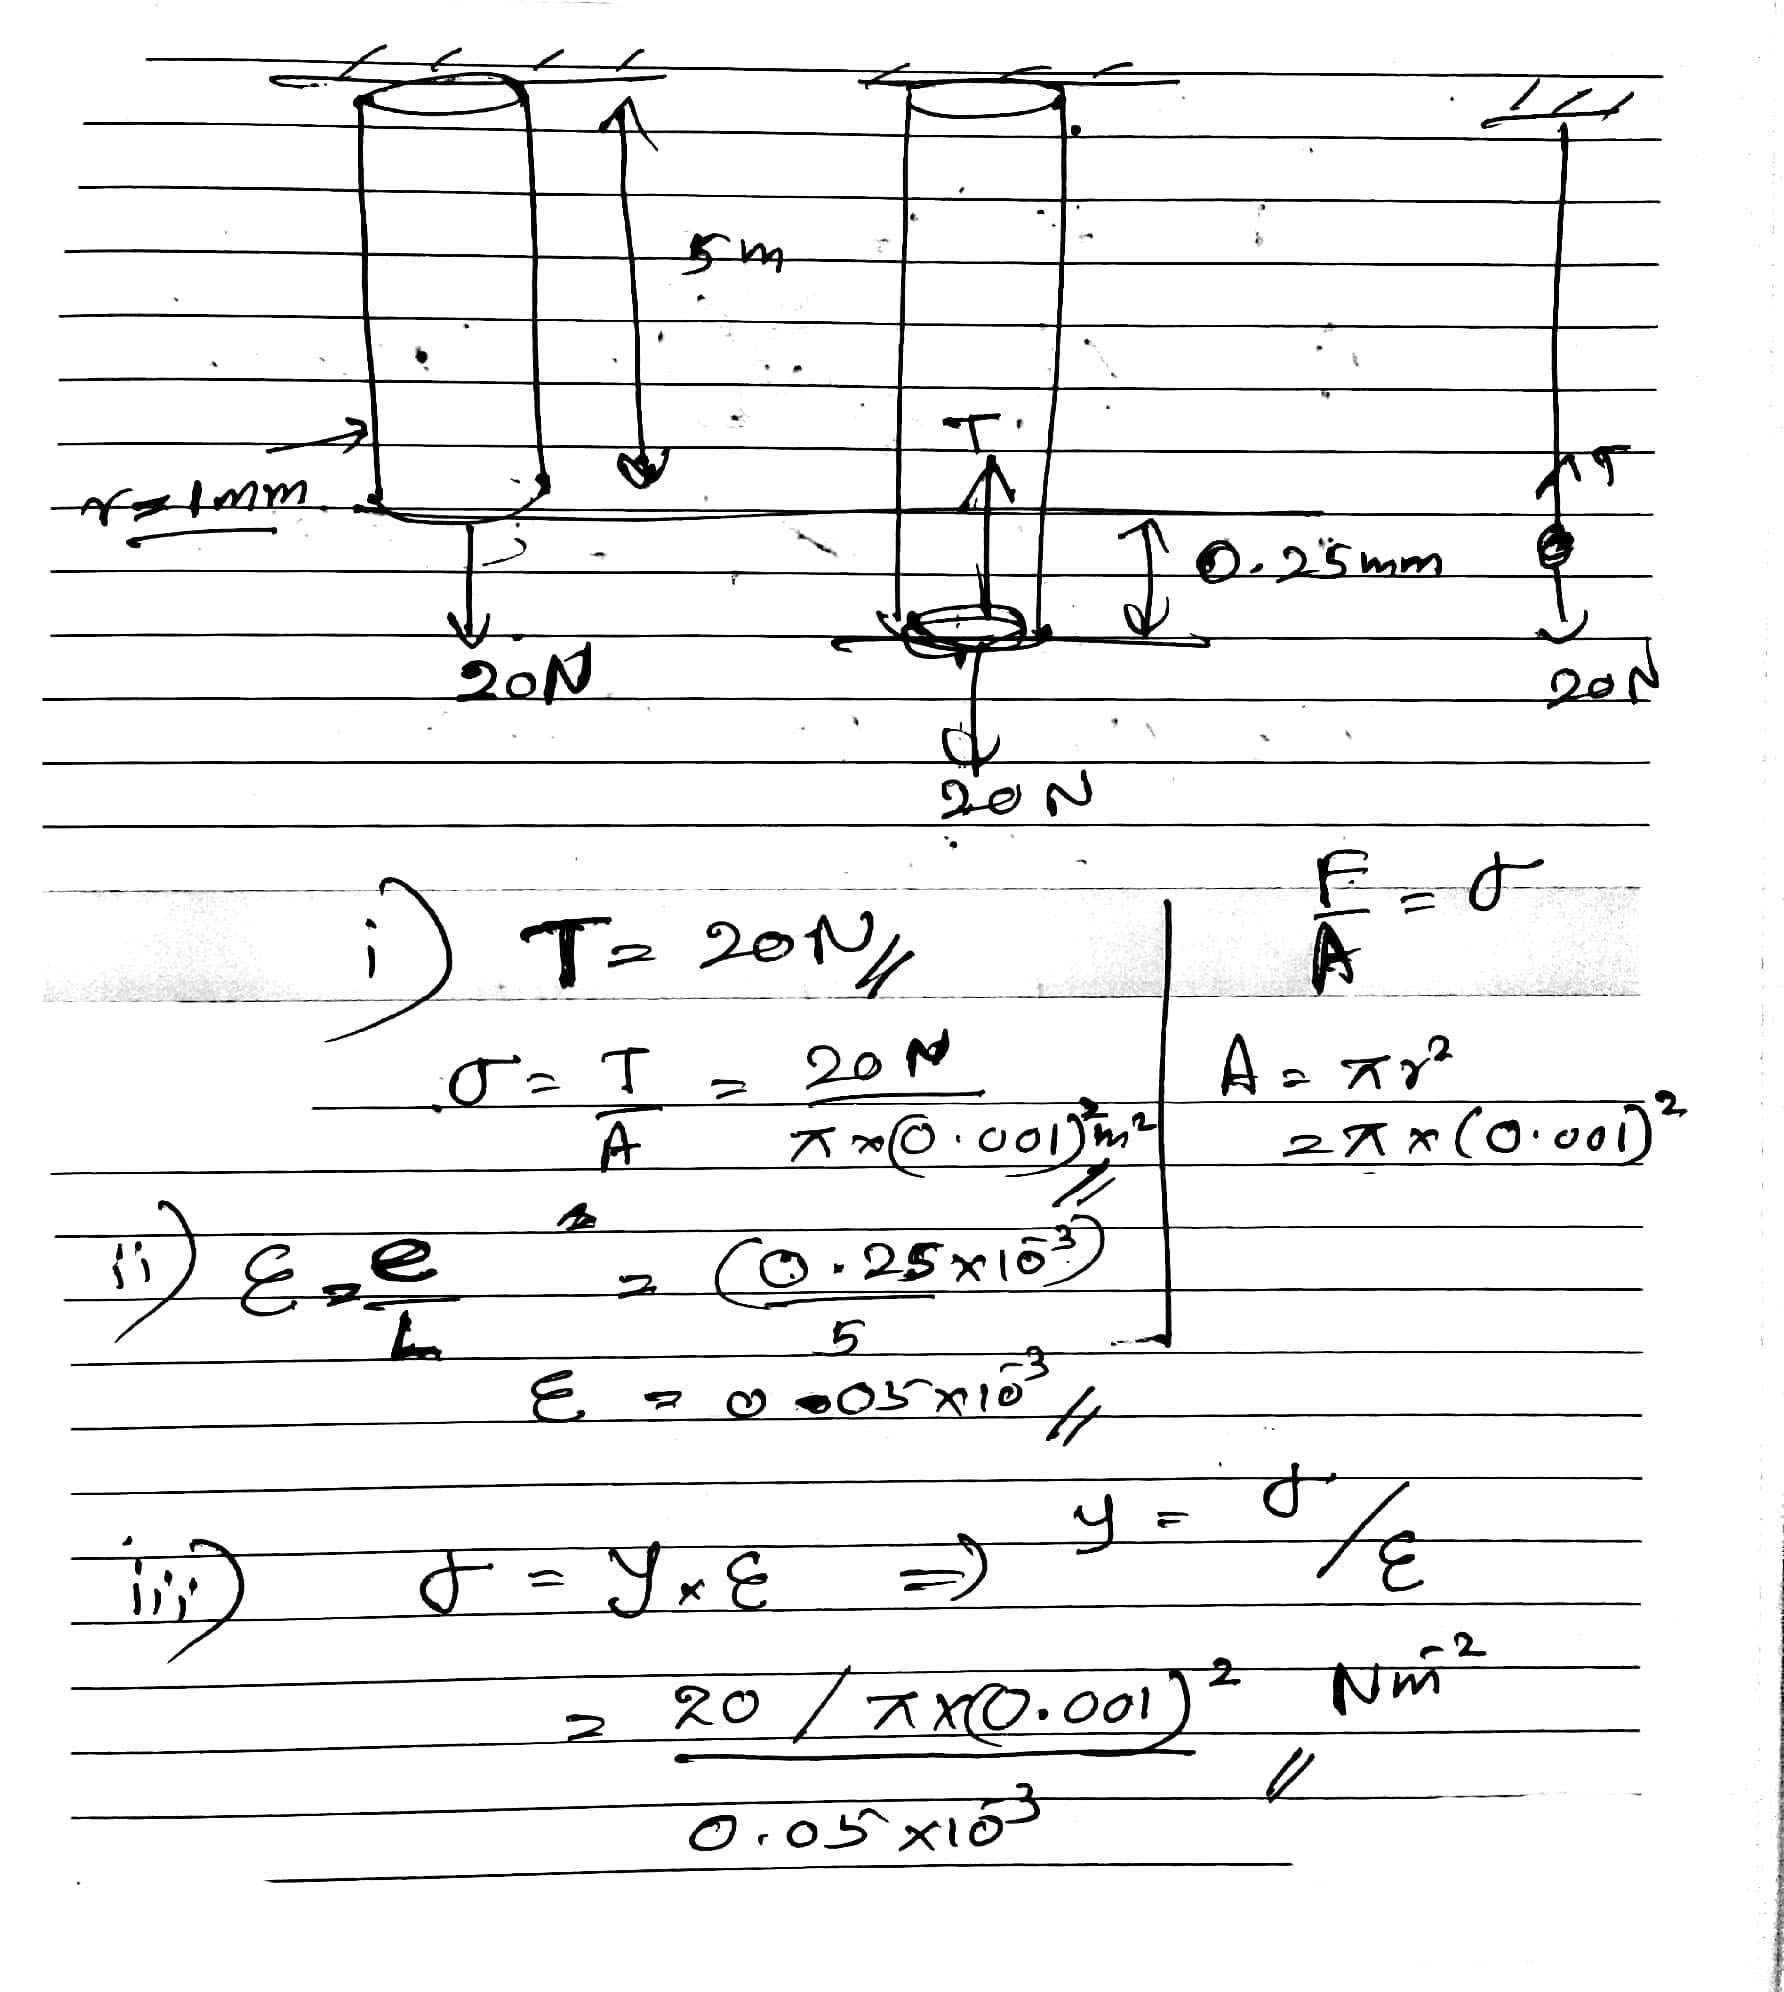 5m
T
r=1mm
0.25mm
T
20N
20N
20N
F/A = σ
i) T = 20N//
σ = T/A = 20N / π×(0.001)²m² //
A = πr²
= π×(0.001)²
ii) ε = e/L = (0.25×10⁻³)/5
ε = 0.05×10⁻³ //
iii) σ = y×ε ⇒ y = σ/ε
= 20/π×(0.001)² Nm⁻² //
0.05×10⁻³